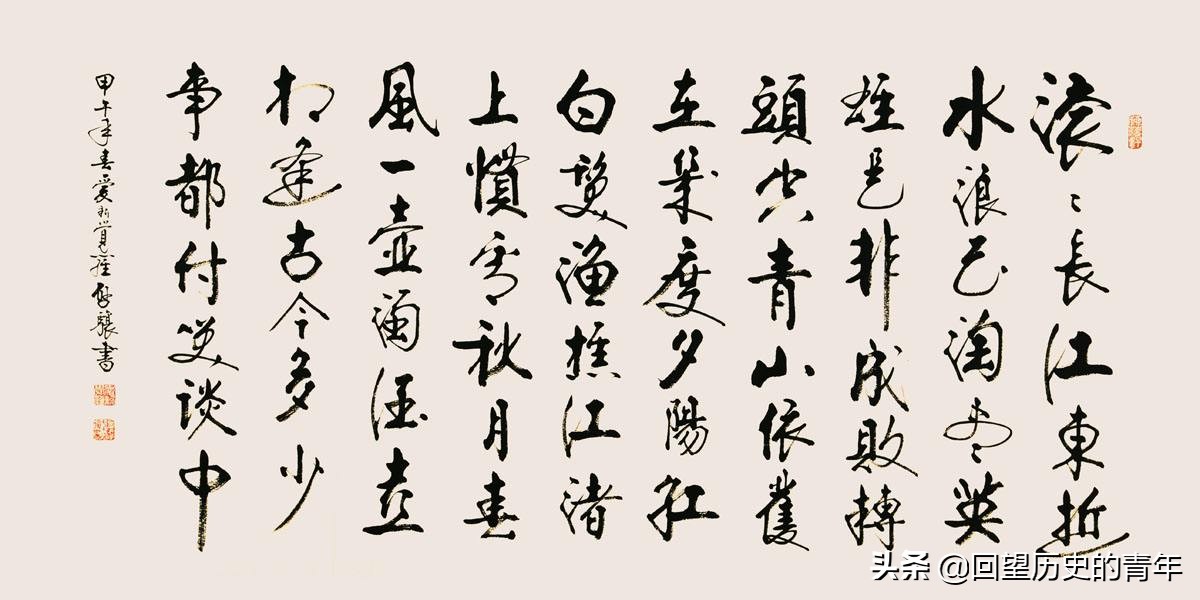 滚〻長江東逝
水浪花淘盡英
雄是非成敗轉
頭空青山依舊
在幾度夕陽紅
白髮漁樵江渚
上慣看秋月春
風一壺濁酒喜
相逢古今多少
事都付笑談中
甲午年春愛新覺羅啓驤書
头条 @回望历史的青年